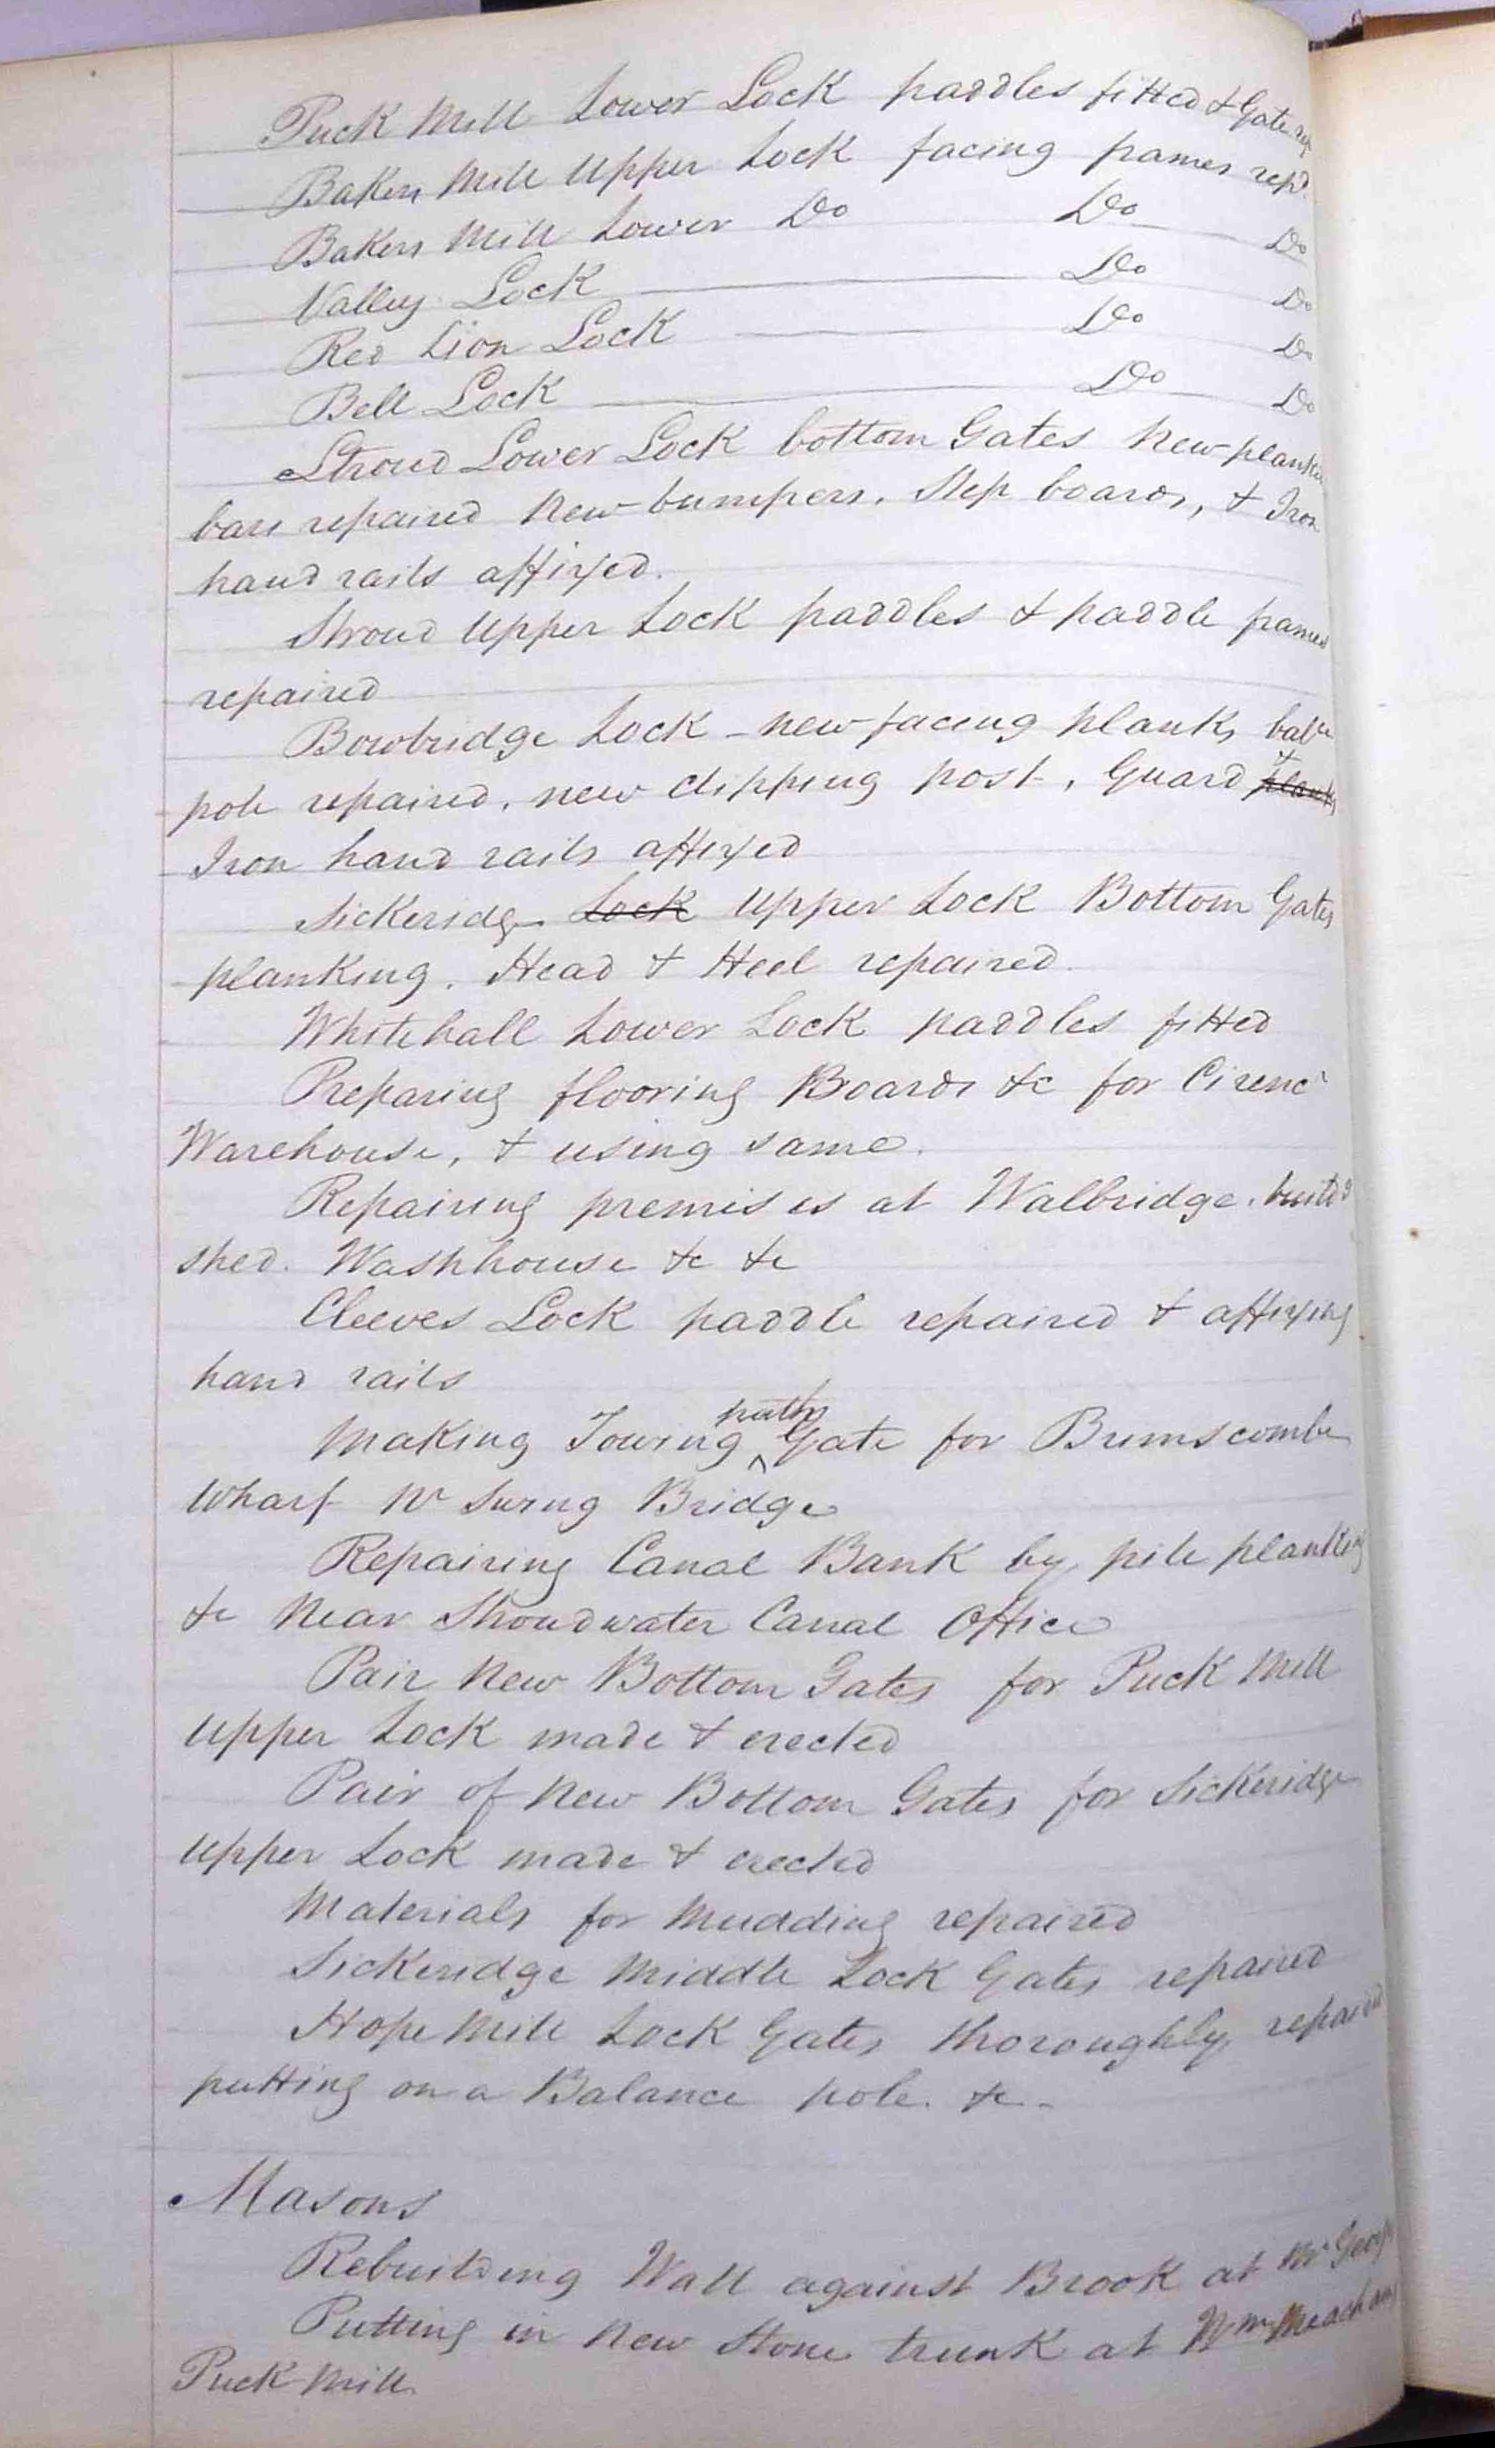 Puck Mill Lower Lock paddles fitted & Gate rep
Bakers Mill Upper Lock facing frames repd.
Bakers Mill Lower Do Do Do
Valley Lock Do Do
Red Lion Lock Do Do
Bell Lock Do Do
Stroud Lower Lock bottom Gates new planked
bars repaired new bumpers, Step boards, & Iron
hand rails affixed.
Stroud Upper Lock paddles & paddle frames
repaired
Bowbridge Lock - new facing planks, balce
pole repaired, new clipping post, Guard & planks
Iron hand rails affixed
Sickeridge Lock Upper Lock Bottom Gates
planking, Head & Heel repaired
Whitehall Lower Lock paddles fitted
Preparing flooring Boards &c for Cirencr
Warehouse, & using same.
Repairing premises at Walbridge, build g
shed. Washhouse &c &c
Cleeves Lock paddle repaired & affixing
hand rails
Making Towing path Gate for Brimscombe
Wharf Nr Swing Bridge
Repairing Canal Bank by pile planking
&c Near Stroudwater Canal Office
Pair New Bottom Gates for Puck Mill
Upper Lock made & erected
Pair of New Bottom Gates for Sickeridge
Upper Lock made & erected
Materials for Mudding repaired
Sickeridge Middle Lock Gates repaired
Hope Mill Lock Gates thoroughly repaired
putting on a Balance pole. &c -
Masons
Rebuilding Wall against Brook at Mr
Putting in New Stone trunk at Wm Meachams
Puck Mill.